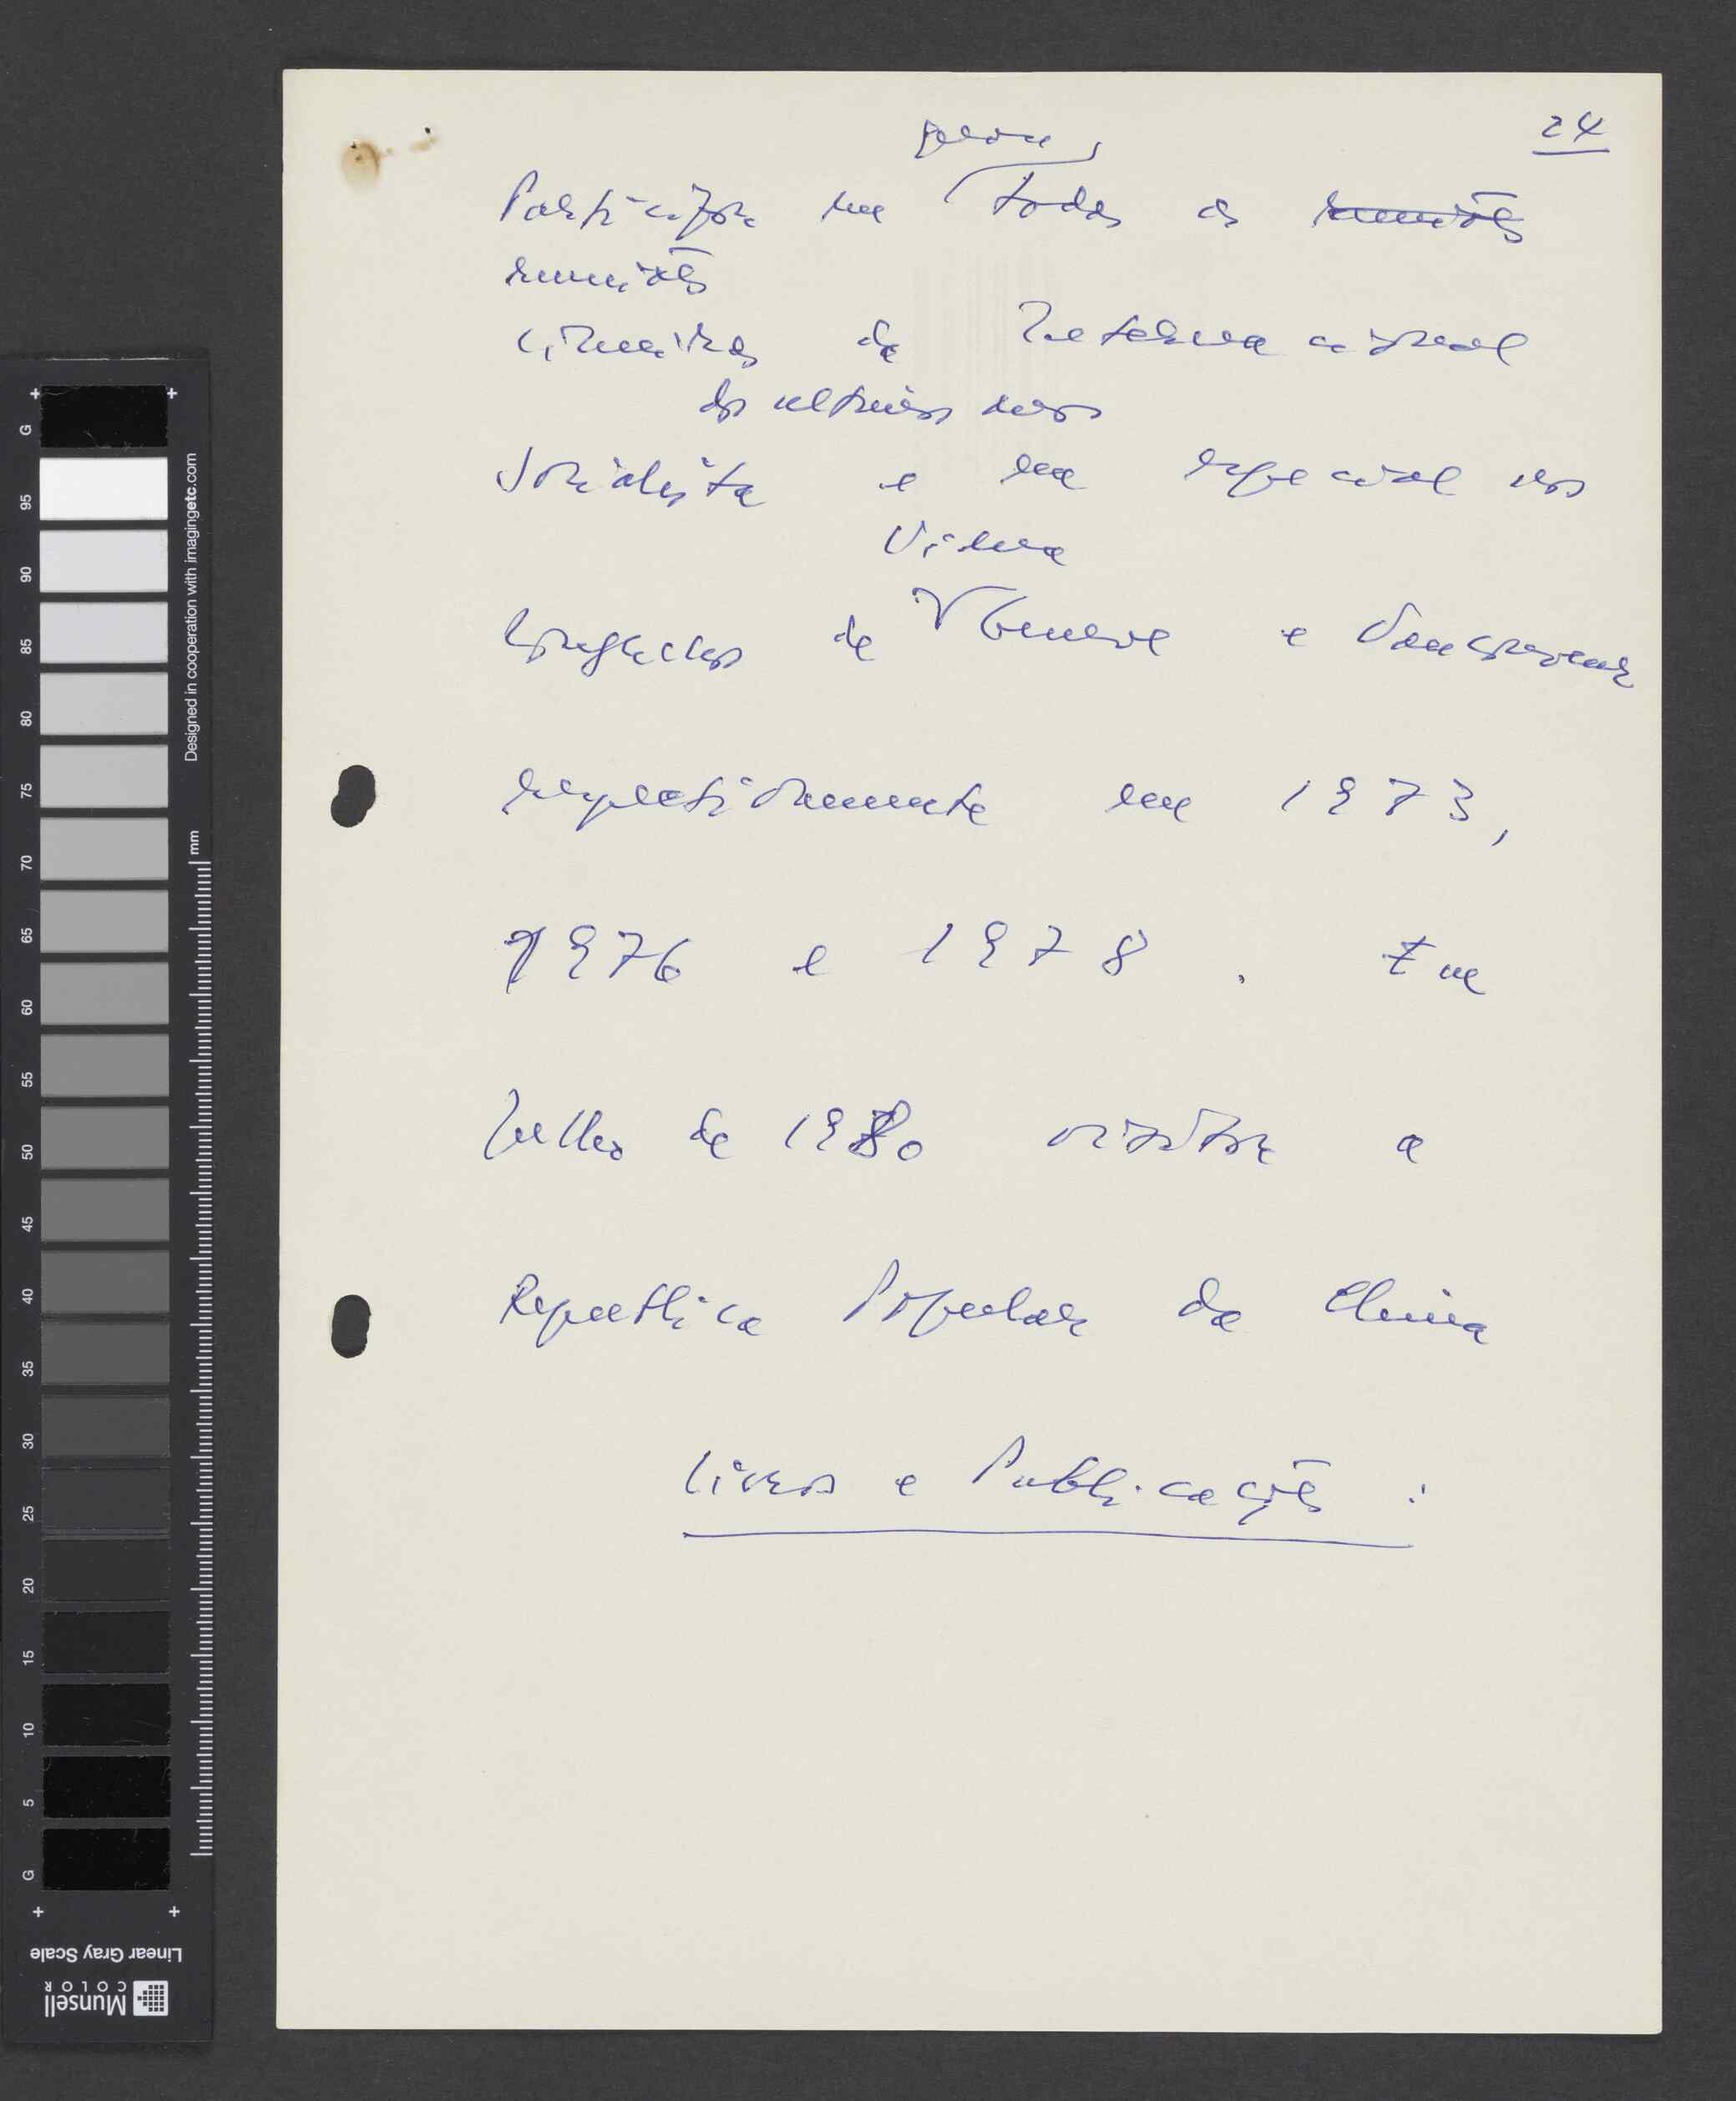 24
Participou em quase todas as reuniões
reuniões
cimeiras da Internacional
dos ultimos anos
Socialista e em especial nos
Viena
Congressos de Geneve e Vancouver
respectivamente em 1973,
1976 e 1978. Em
Julho de 1980 visitou a
Republica Popular da China
Livros e Publicações:
G
95
90
85
80
75
70
65
60
55
50
45
40
35
30
25
20
15
10
5
G
mm
Designed in cooperation with imagingetc.com
Linear Gray Scale
Munsell
COLOR